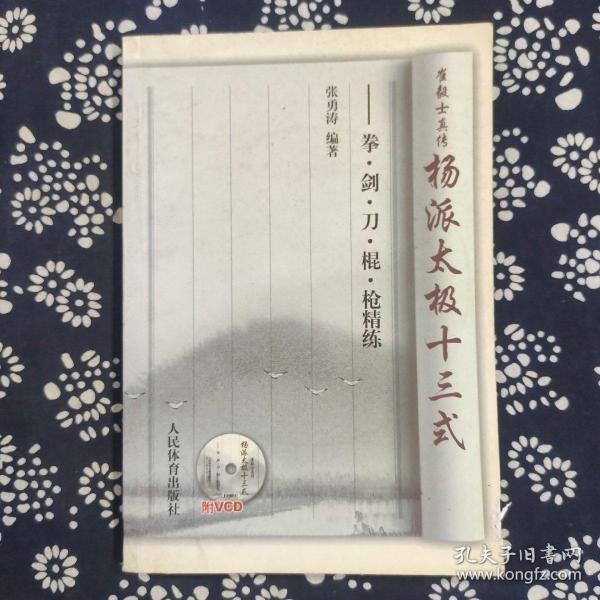 崔毅士真传
杨派太极十三式
——拳·剑·刀·棍·枪精练
张勇涛 编著
人民体育出版社
杨派太极十三式
附VCD
孔夫子旧书网
www.kongfz.com